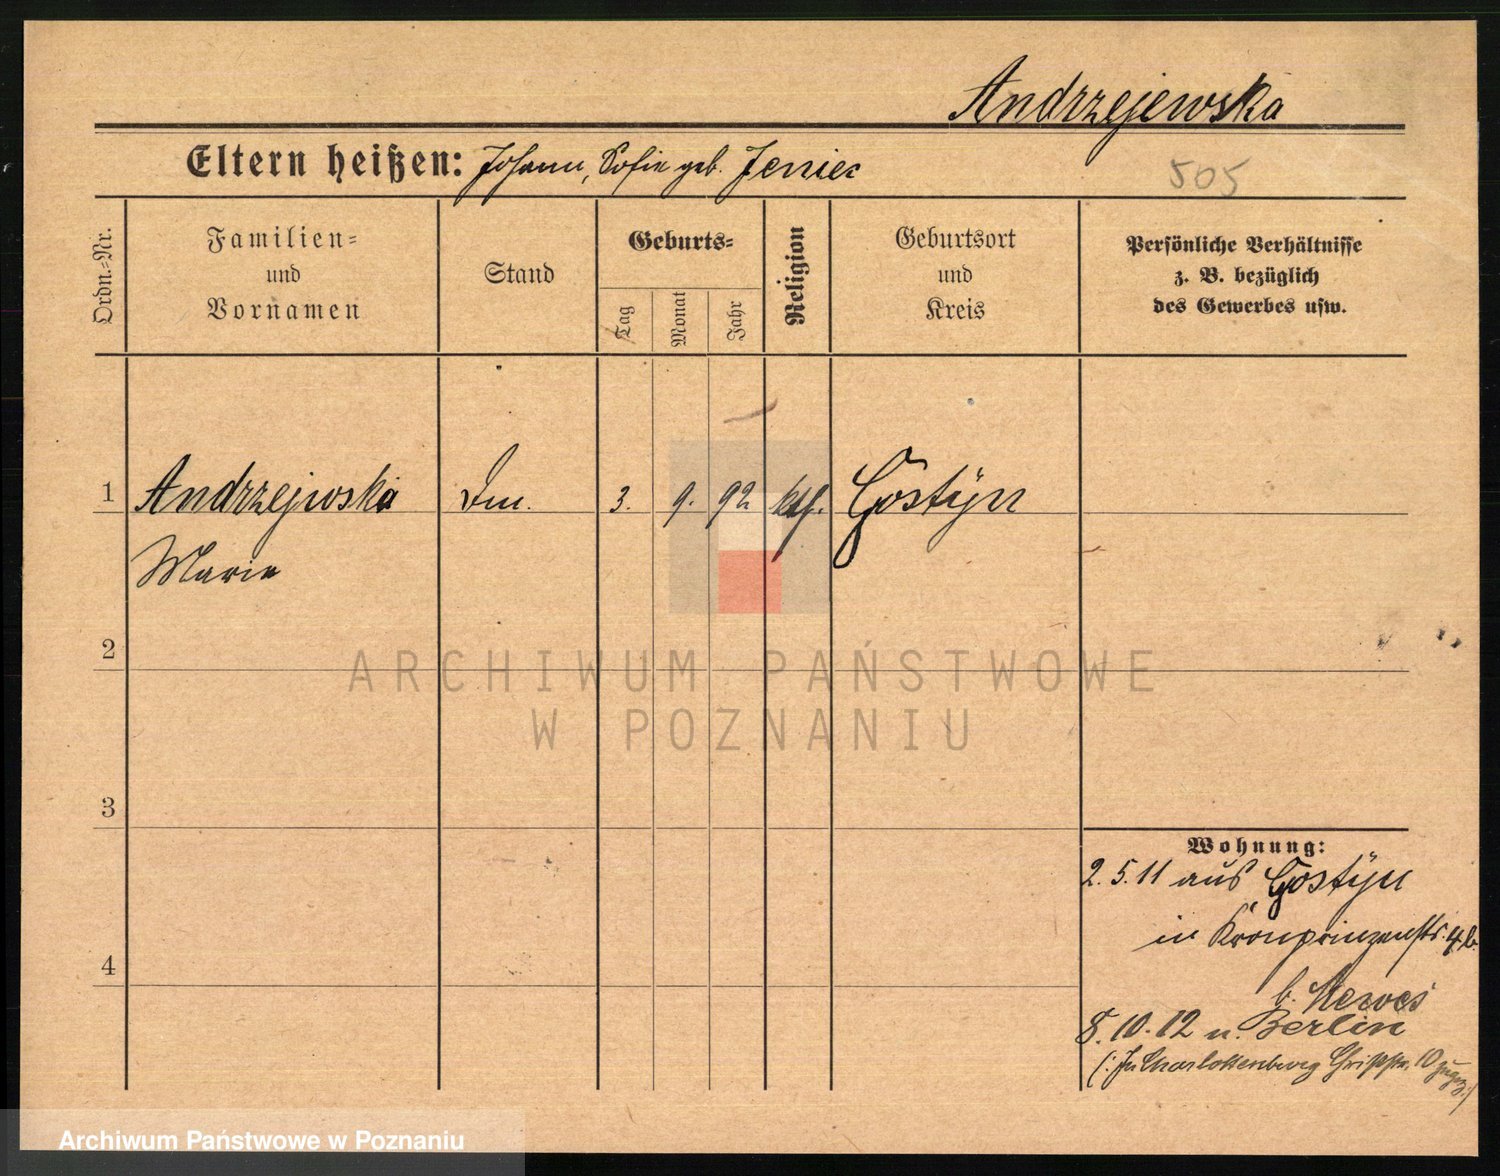 Andrzejewska
Eltern heißen: Johann, Sofie geb.
505
Ordn.-Nr.
Familien-
und
Vornamen
Stand
Geburts-
Tag
Monat
Jahr
Religion
Geburtsort
und
Kreis
Persönliche Verhältnisse
z. B. bezüglich
des Gewerbes usw.
1 Andrzejewska 3. 9. 92 kth. Gostÿn
Marie
2
ARCHIWUM PAŃSTWOWE
W POZNANIU
3
Wohnung:
2.5.11 aus Gostÿn
in Kronprinzenstr. 4 b.
4
8.10.12 n. Berlin
(: In Charlottenburg 10
Archiwum Państwowe w Poznaniu